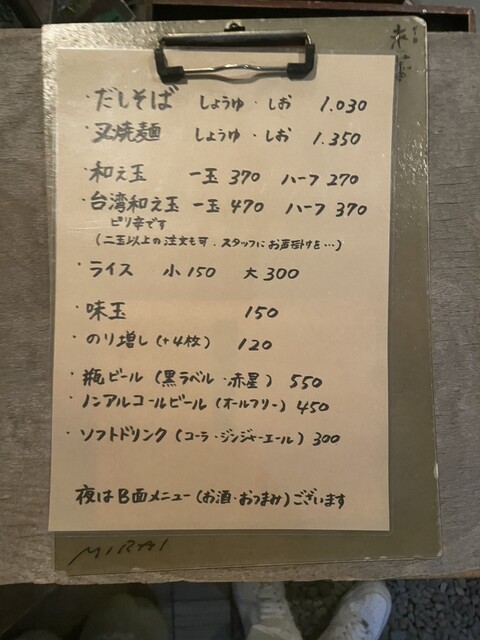 ・だしそば しょうゆ・しお 1.030
・叉焼麺 しょうゆ・しお 1.350
・和え玉 一玉 370 ハーフ 270
・台湾和え玉 一玉 470 ハーフ 370
ピリ辛です
(二玉以上の注文も可．スタッフにお声掛けを…)
・ライス 小 150 大 300
・味玉 150
・のり増し (+4枚) 120
・瓶ビール (黒ラベル・赤星) 550
・ノンアルコールビール (オールフリー) 450
・ソフトドリンク (コーラ・ジンジャーエール) 300
夜はB面メニュー (お酒・おつまみ) ございます
MIRAI